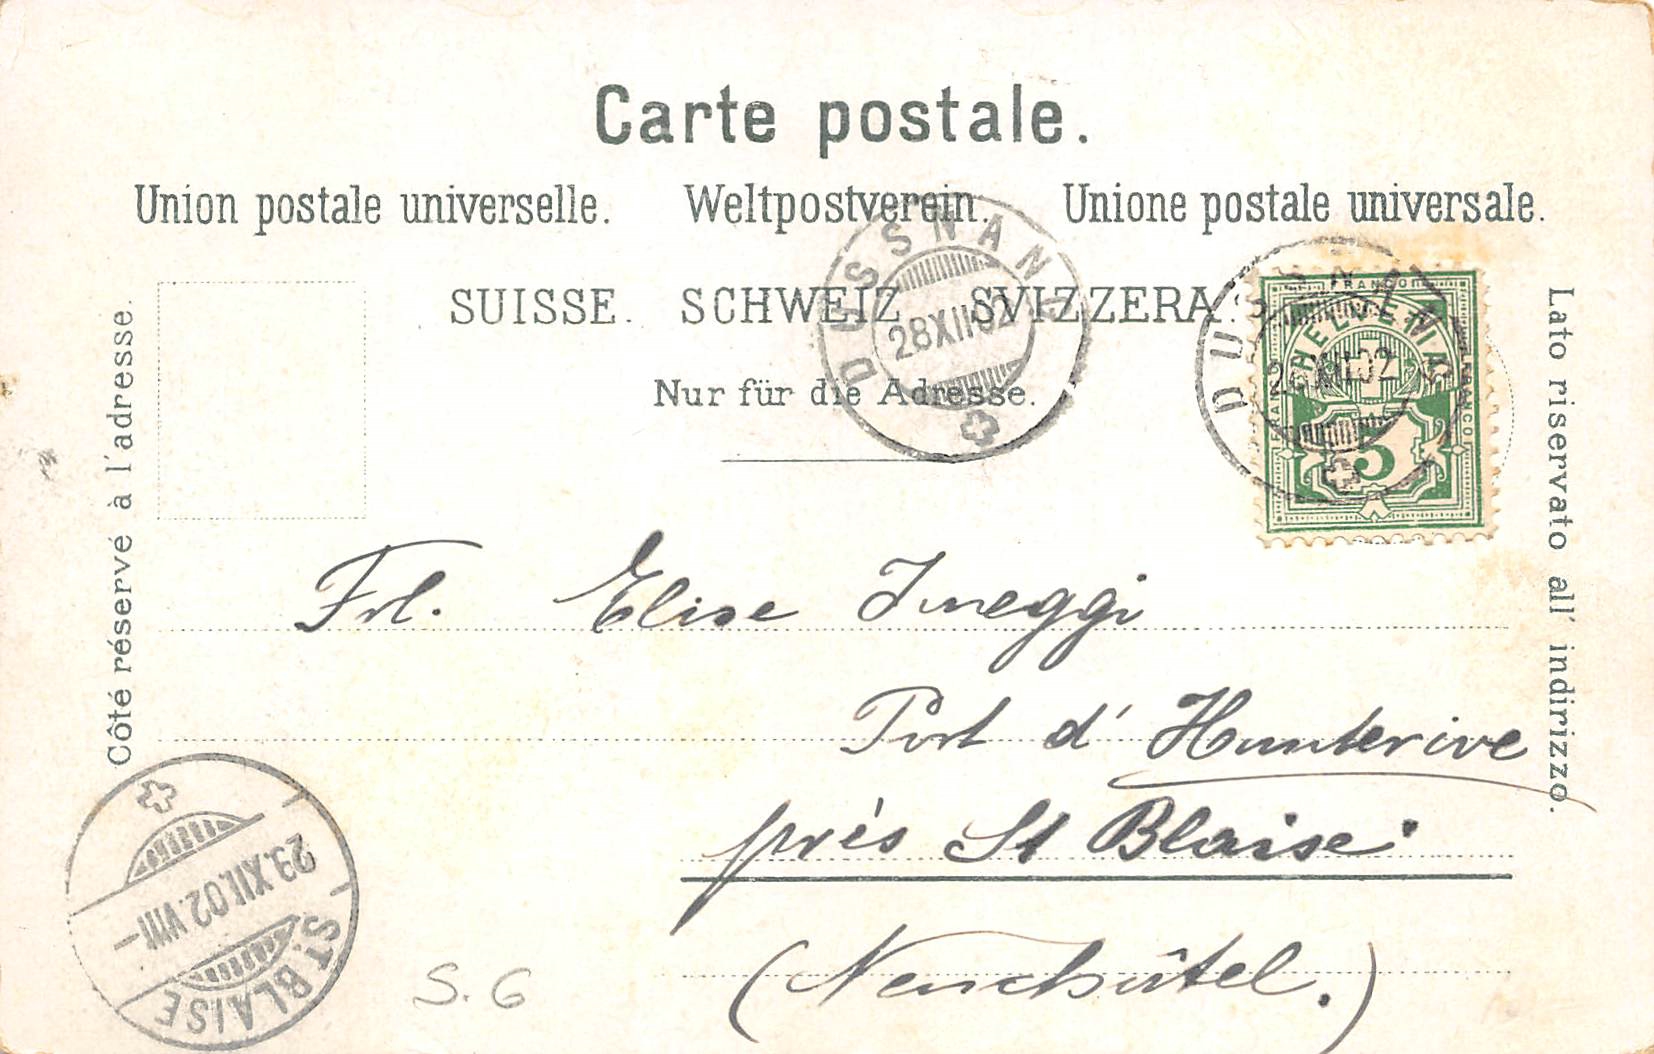 Carte postale.
Union postale universelle. Weltpostverein. Unione postale universale.
SUISSE. SCHWEIZ. SVIZZERA.
Nur für die Adresse.
Côté réservé à l'adresse.
Lato riservato all' indirizzo.
DUSSNANG
28 XII 02
DUSSNANG
XII 02
FRANCO
HELVETIA
FRANCO
FRANCO
5
Frl. Elise Imeggi
Port d' Hauterive
près St Blaise
(Neuchâtel.)
ST. BLAISE
29.XII.02.VIII–
S. G